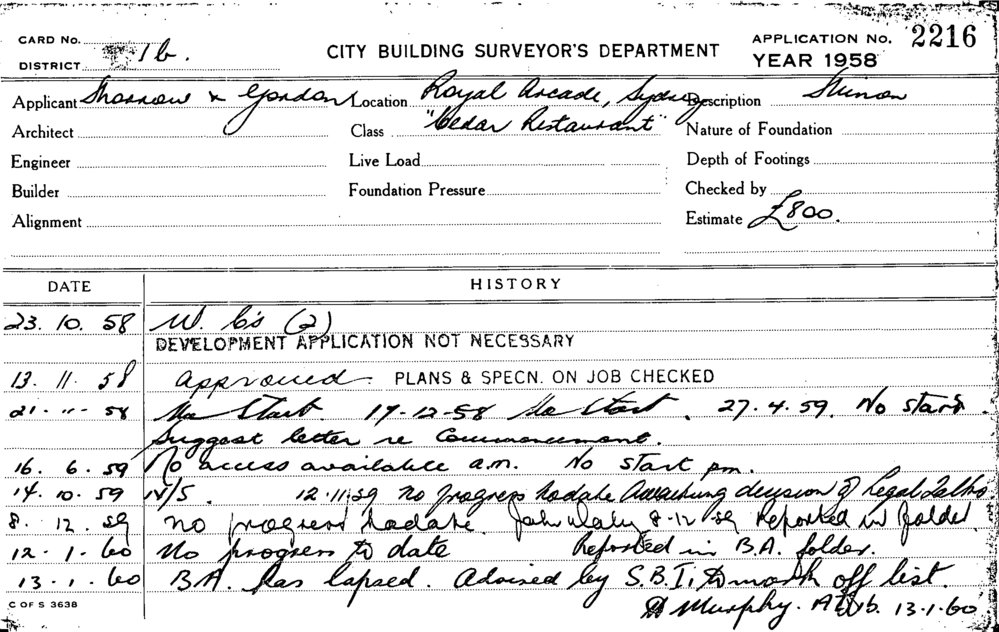 CARD No. 1b. CITY BUILDING SURVEYOR'S DEPARTMENT APPLICATION No. 2216
DISTRICT YEAR 1958
Applicant & Gordon Location Royal Arcade, Sydney Description
Architect Class "Cedar Restaurant" Nature of Foundation
Engineer Live Load Depth of Footings
Builder Foundation Pressure Checked by
Alignment Estimate £800.
DATE HISTORY
23. 10. 58 W. C's (2)
DEVELOPMENT APPLICATION NOT NECESSARY
13. 11. 58 Approved. PLANS & SPECN. ON JOB CHECKED
21. 11. 58 No Start 17-12-58 No Start. 27.4.59. No start
Suggest letter re Commencement.
16. 6. 59 No access available a.m. No start pm.
14. 10. 59 N/S. 12.11.59 No progress todate Awaiting decision of Legal
8. 12. 59 No progress todate. 8-12-59 Reported in Folder.
12. 1. 60 No progress to date Reported in B.A. folder.
13. 1. 60 B.A. has lapsed. Advised by S.B.I. to mark off list.
Murphy. 13.1.60
C OF S 3638